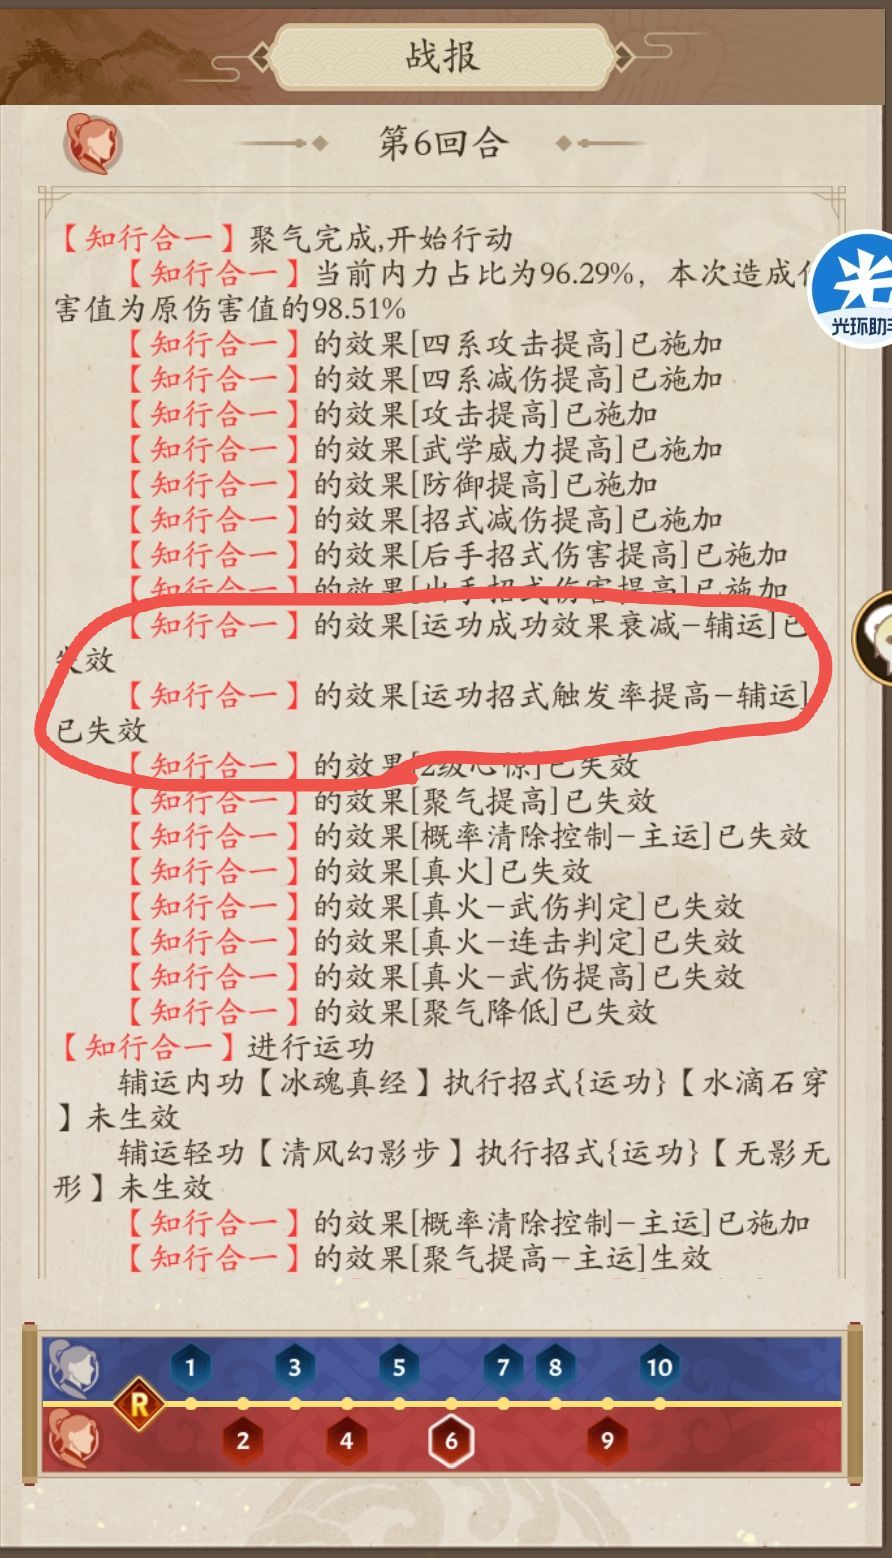 战报
第6回合
【知行合一】聚气完成,开始行动
【知行合一】当前内力占比为96.29%，本次造成
害值为原伤害值的98.51%
光环助
【知行合一】的效果[四系攻击提高]已施加
【知行合一】的效果[四系减伤提高]已施加
【知行合一】的效果[攻击提高]已施加
【知行合一】的效果[武学威力提高]已施加
【知行合一】的效果[防御提高]已施加
【知行合一】的效果[招式减伤提高]已施加
【知行合一】的效果[后手招式伤害提高]已施加
【知行合一】的效果[出手招式伤害提高]已施加
【知行合一】的效果[运功成功效果衰减-辅运]已
失效
【知行合一】的效果[运功招式触发率提高-辅运]
已失效
【知行合一】的效果[2级心惊]已失效
【知行合一】的效果[聚气提高]已失效
【知行合一】的效果[概率清除控制-主运]已失效
【知行合一】的效果[真火]已失效
【知行合一】的效果[真火-武伤判定]已失效
【知行合一】的效果[真火-连击判定]已失效
【知行合一】的效果[真火-武伤提高]已失效
【知行合一】的效果[聚气降低]已失效
【知行合一】进行运功
辅运内功【冰魂真经】执行招式{运功}【水滴石穿
】未生效
辅运轻功【清风幻影步】执行招式{运功}【无影无
形】未生效
【知行合一】的效果[概率清除控制-主运]已施加
【知行合一】的效果[聚气提高-主运]生效
1 3 5 7 8 10
R
2 4 6 9